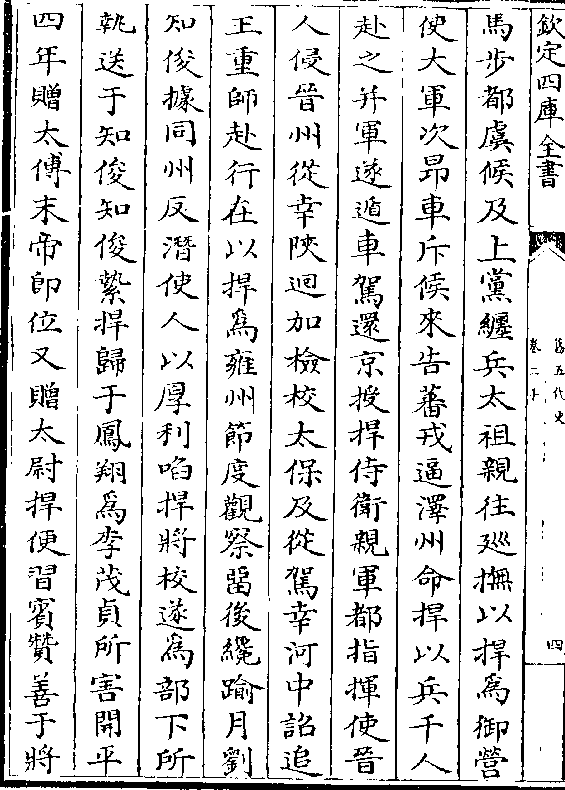 欽定四庫全書
舊五代史
卷二十
四
馬步都虞候及上黨纏兵太祖親往廵撫以捍為御營
使大軍次昻車斥候來告蕃戎逼澤州命捍以兵千人
赴之并軍遂遁車駕還京授捍侍衛親軍都指揮使晉
人侵晉州從幸陜迴加檢校太保及從駕幸河中詔追
王重師赴行在以捍為雍州節度觀察留後纔踰月劉
知俊據同州反潛使人以厚利啗捍將校遂為部下所
執送于知俊知俊縶捍歸于鳳翔為李茂貞所害開平
四年贈太傅末帝即位又贈太尉捍便習賓贊善于將